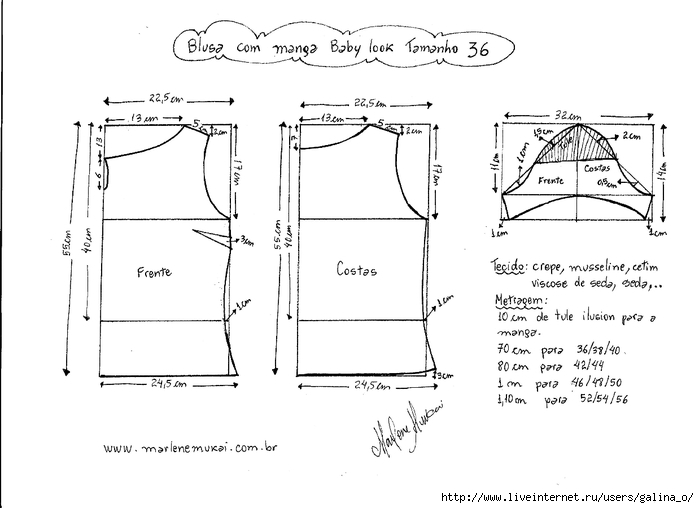 Blusa com manga Baby look Tamanho 36
22,5 cm
13 cm
5 cm
2 cm
13
6
17 cm
55 cm
40 cm
3 cm
Frente
1 cm
24,5 cm
22,5 cm
13 cm
5 cm
2 cm
7
17 cm
55 cm
40 cm
Costas
1 cm
3 cm
24,5 cm
32 cm
1,5 cm
Tule
2 cm
1 cm
11 cm
Frente
Costas
0,5 cm
14 cm
1 cm
1 cm
Tecido: crepe, musseline, cetim
viscose de seda, seda,..
Metragem:
10 cm de tule ilusion para a
manga.
70 cm para 36/38/40.
80 cm para 42/44
1 cm para 46/48/50
1,10 cm para 52/54/56
Marlene Mukai
www.marlenemukai.com.br
http://www.liveinternet.ru/users/galina_o/